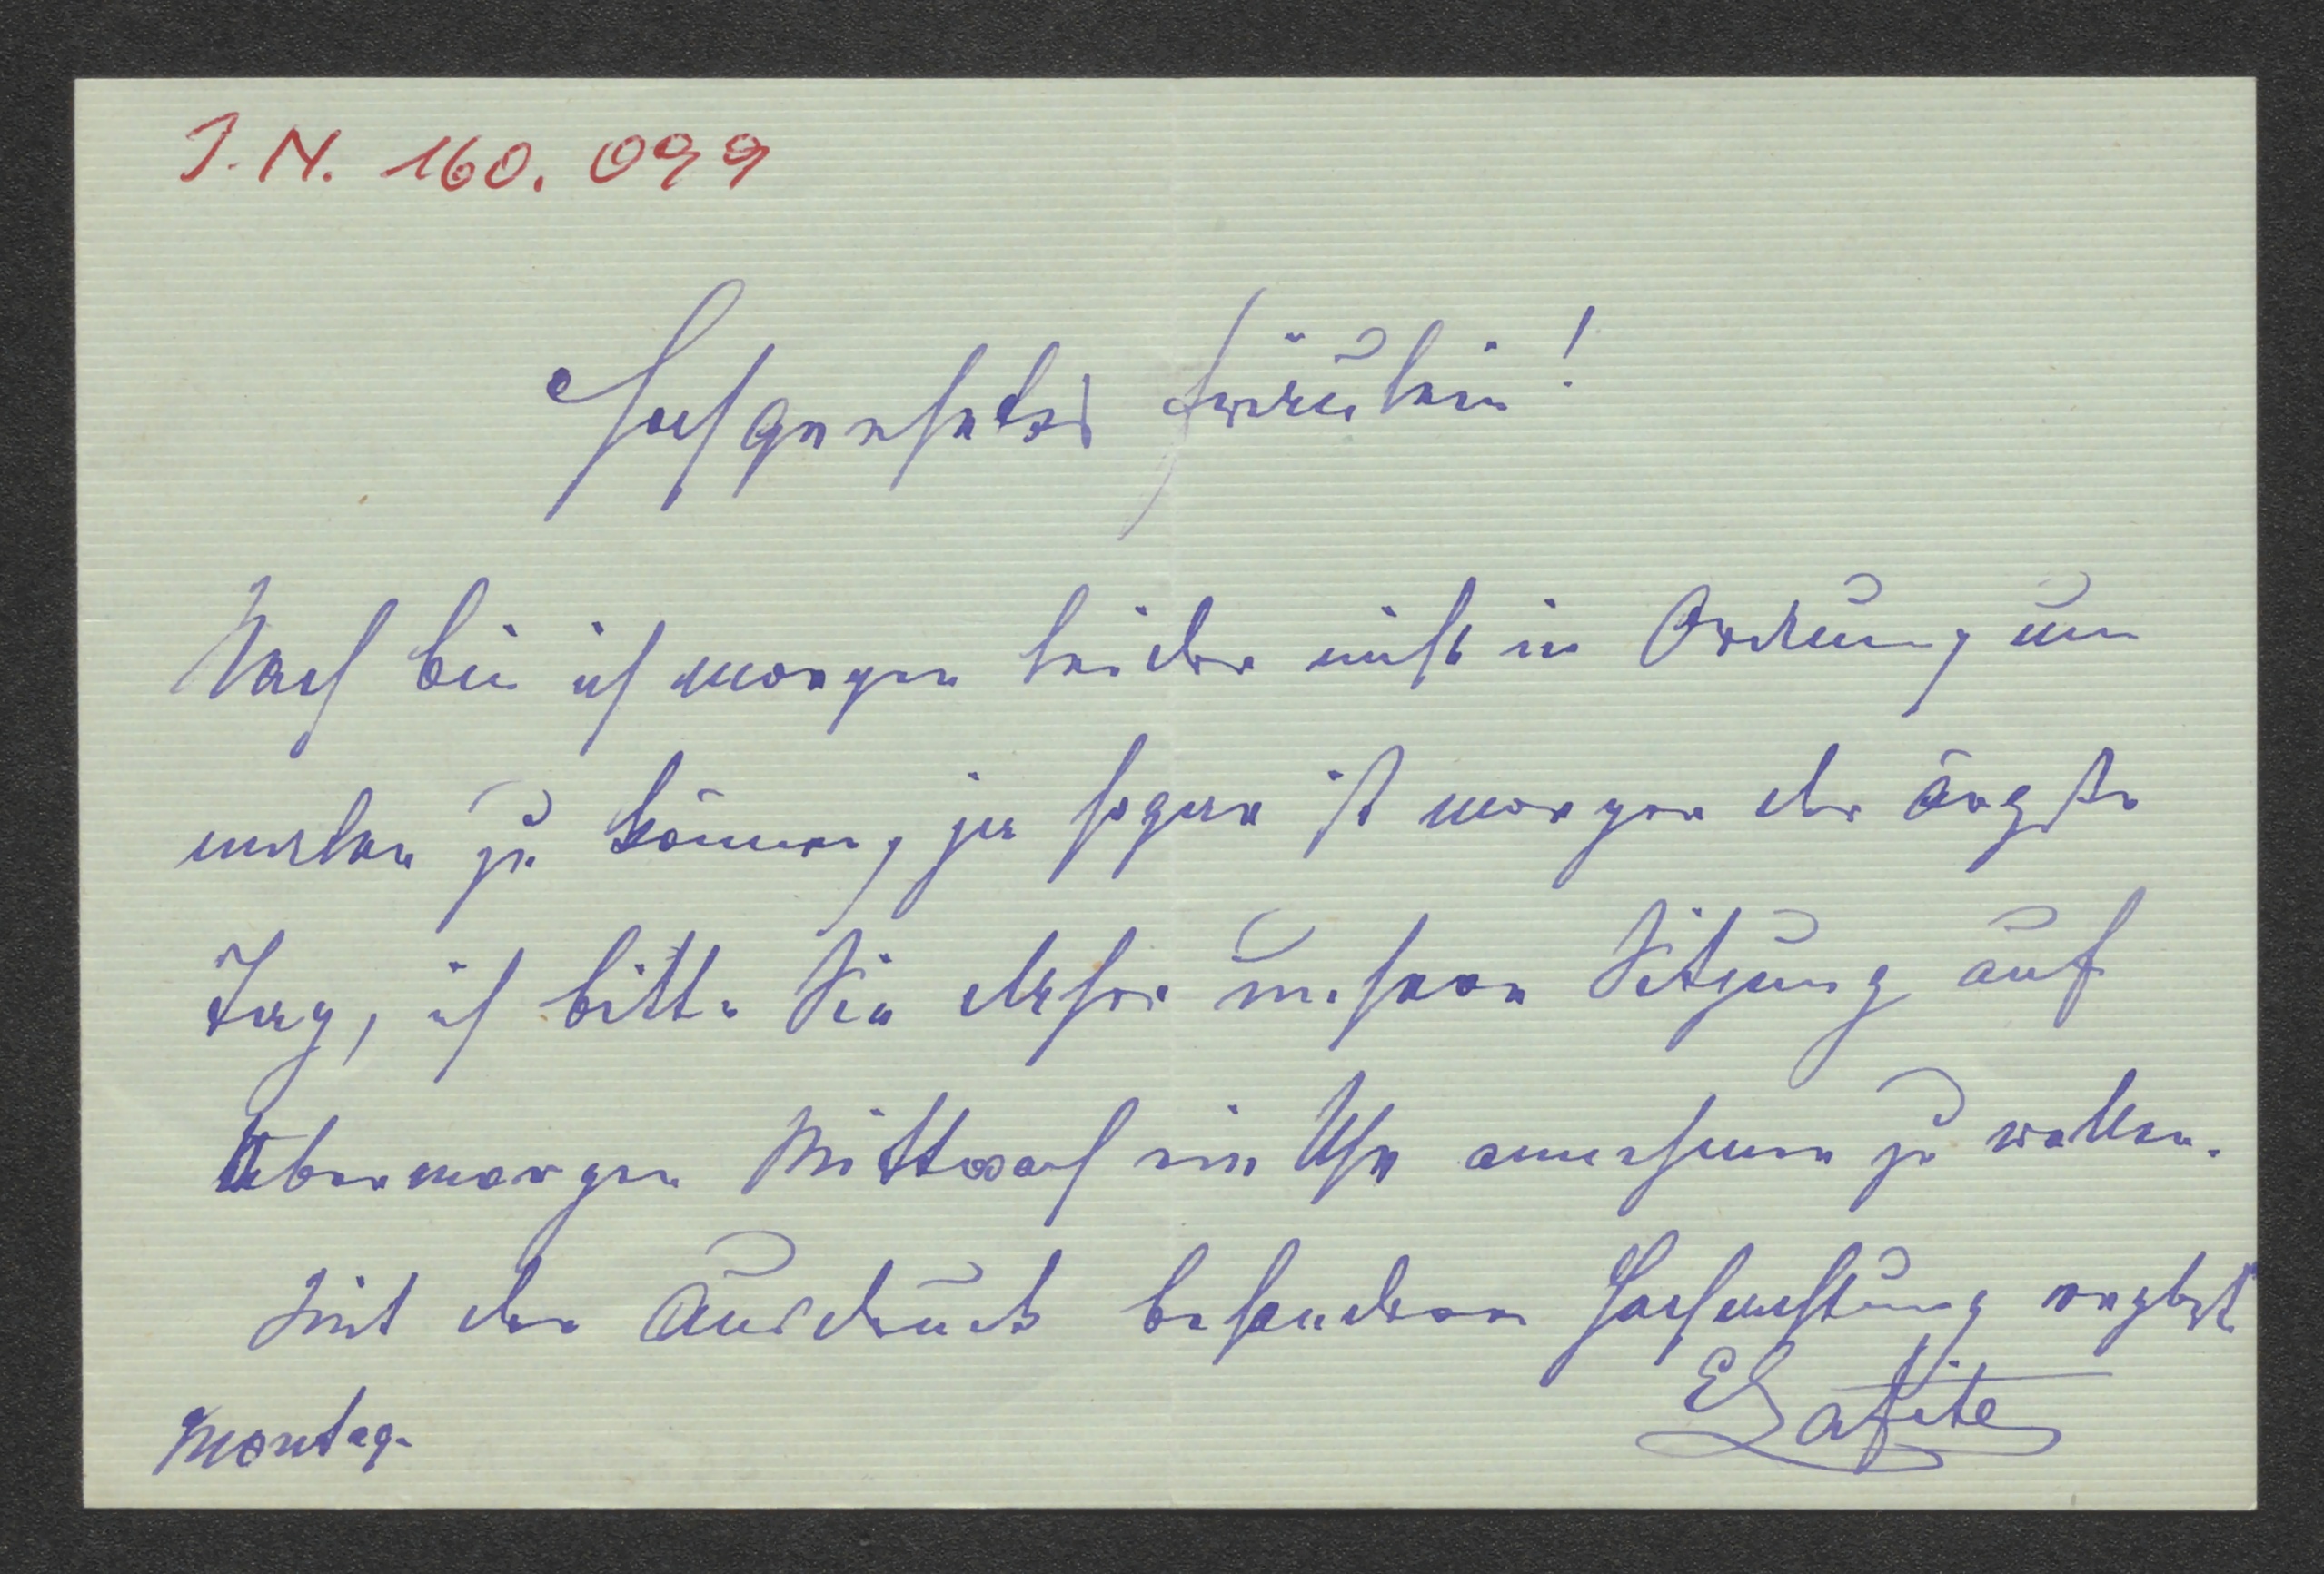 J.N. 160.099
Hochgeehrtes Fräulein!
Noch bin ich morgen leider nicht in Ordnung um
malen zu können, ja sogar ist morgen der ärgste
Tag, ich bitte Sie daher unsere Sitzung auf
Übermorgen Mittwoch ein Uhr annehmen zu wollen.
Mit den Ausdruck besonderer Hochachtung ergbst
ELafite
Montag.